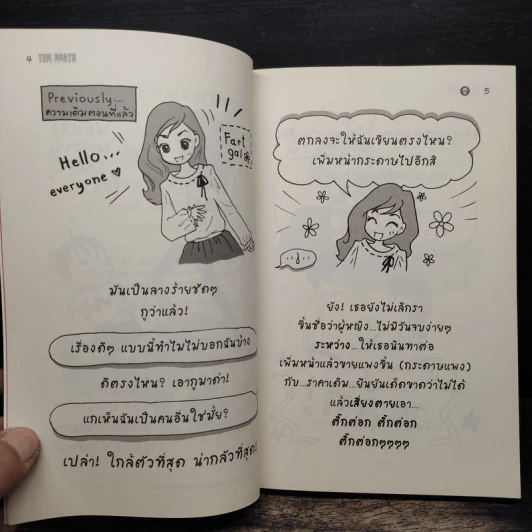 4
Previously...
ความเดิมตอนที่แล้ว
Hello...
everyone
Fart
gal
มันเป็นลางร้ายชัดๆ
กูว่าแล้ว!
เรื่องดีๆ แบบนี้ทำไมไม่บอกฉันบ้าง
ดีตรงไหน? เอากูมาด่า!
แกเห็นฉันเป็นคนอื่นใช่มั้ย?
เปล่า! ใกล้ตัวที่สุด น่ากลัวที่สุด!
5
ตกลงจะให้ฉันเขียนตรงไหน?
เพิ่มหน้ากระดาษไปอีกสิ
ยัง! เธอยังไม่เลิกรา
ขึ้นชื่อว่าผู้หญิง...ไม่มีวันจบง่ายๆ
ระหว่าง...ให้เธอนินทาต่อ
เพิ่มหน้าแล้วขายแพงขึ้น (กระดาษแพง)
กับ...ราคาเดิม...ยืนยันเด็ดขาดว่าไม่ได้
แล้วเสี่ยงตายเอา...
ติ๊กต่อก ติ๊กต่อก
ติ๊กต่อกๆๆๆๆ